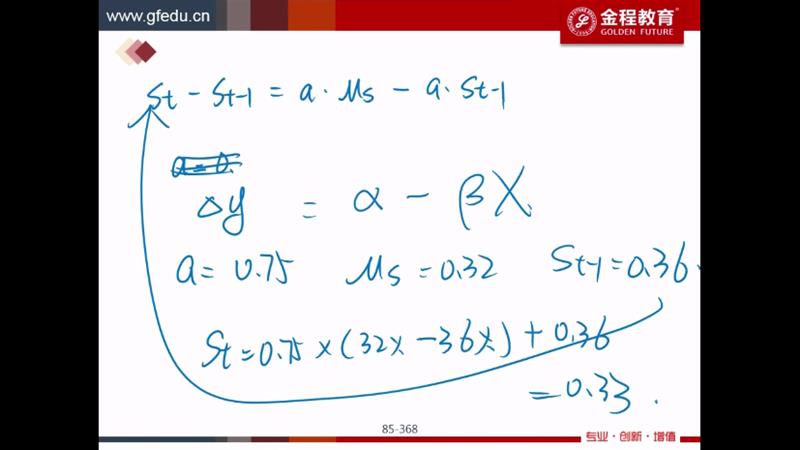 www.gfedu.cn
金程教育
GOLDEN FUTURE
St - St-1 = a · Ms - a · St-1
a = 0.
Δy = α - βX
a = 0.75 Ms = 0.32 St-1 = 0.36
St = 0.75 × (32% - 36%) + 0.36
= 0.33.
85-368
专业·创新·增值